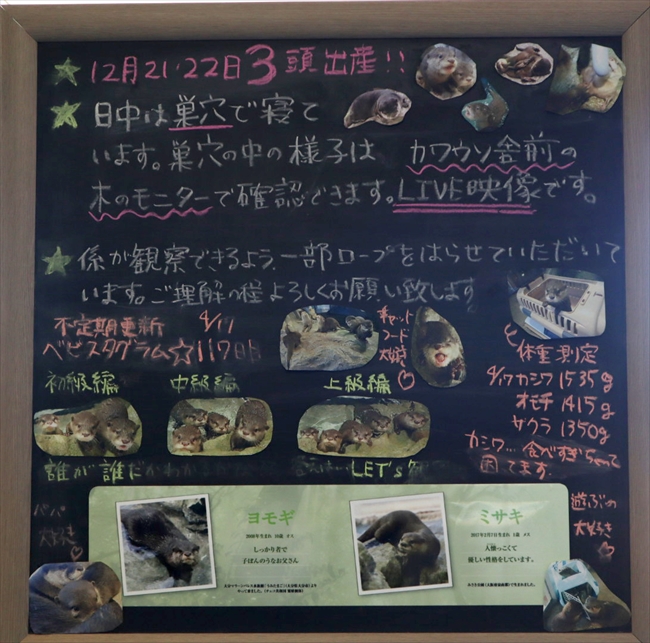 12月21・22日3頭出産!!
日中は巣穴で寝て
います。巣穴の中の様子は カワウソ舎前の
木のモニターで確認できます。LIVE映像です。
係が観察できるよう、一部ロープをはらせていただいて
います。ご理解の程よろしくお願い致します
不定期更新 4/17
ベビスタグラム☆117日目
キャット
フード
大好き
体重測定
4/17 カシワ 1535g
オモチ 1415g
サクラ 1350g
カシワ…食べすぎちゃって
困ってます。
初級編 中級編 上級編
誰が誰だかわか
LET's
パパ
大好き
遊ぶの
大好き
ヨモギ
しっかり者で
子ぼんのうなお父さん
ミサキ
人懐っこくて
優しい性格をしています。